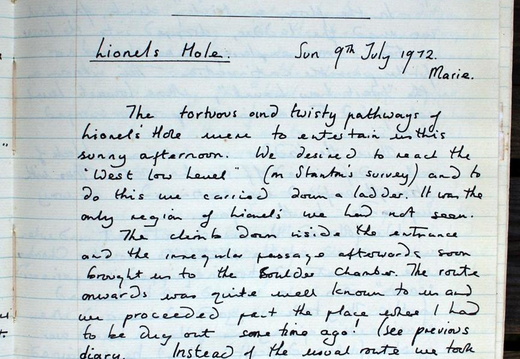 Lionels Hole. Sun 9th July 1972.
Marie.
The tortuous and twisty pathways of
Lionels' Hole were to entertain us this
sunny afternoon. We desired to reach the
"West Low Level" (on Stanton's survey) and to
do this we carried down a ladder. It was the
only region of Lionels we had not seen.
The climb down inside the entrance
and the irregular passage afterwards soon
brought us to the Boulder Chamber. The route
onwards was quite well known to us and
we proceeded past the place where I had
to be dug out some time ago! (see previous
diary. Instead of the usual route we took